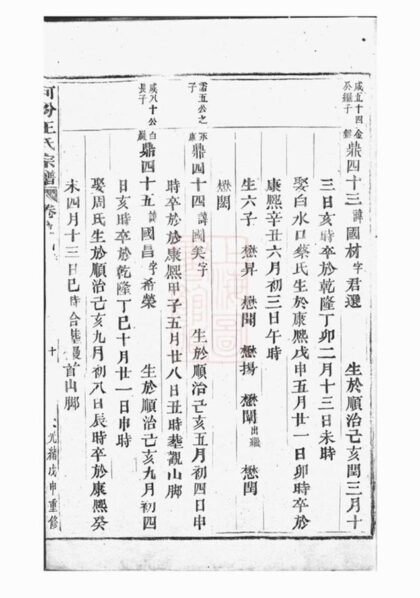 咸五十四金
公繼子
鼎四十三諱國材字君選 生於順治己亥閏三月十
三日亥時卒於乾隆丁卯二月十三日未時
娶白水口蔡氏生於康熙戊申五月廿一日卯時卒於
康熙辛丑六月初三日午時
生六子 懋昇 懋聞 懋揚 懋闌出繼 懋閏
懋閣
需五公之
子
鼎四十四諱國美字 生於順治己亥五月初四日申
時卒於康熙甲子五月廿八日丑時葬觀山脚
咸八十公白
長子
鼎四十五諱國昌字希榮 生於順治己亥九月初四
日亥時卒於乾隆丁巳十月廿一日申時
娶周氏生於順治己亥九月初八日辰時卒於康熙癸
未四月十三日巳時合葬 首山脚
王氏宗譜 卷
十
光緒戊申重修